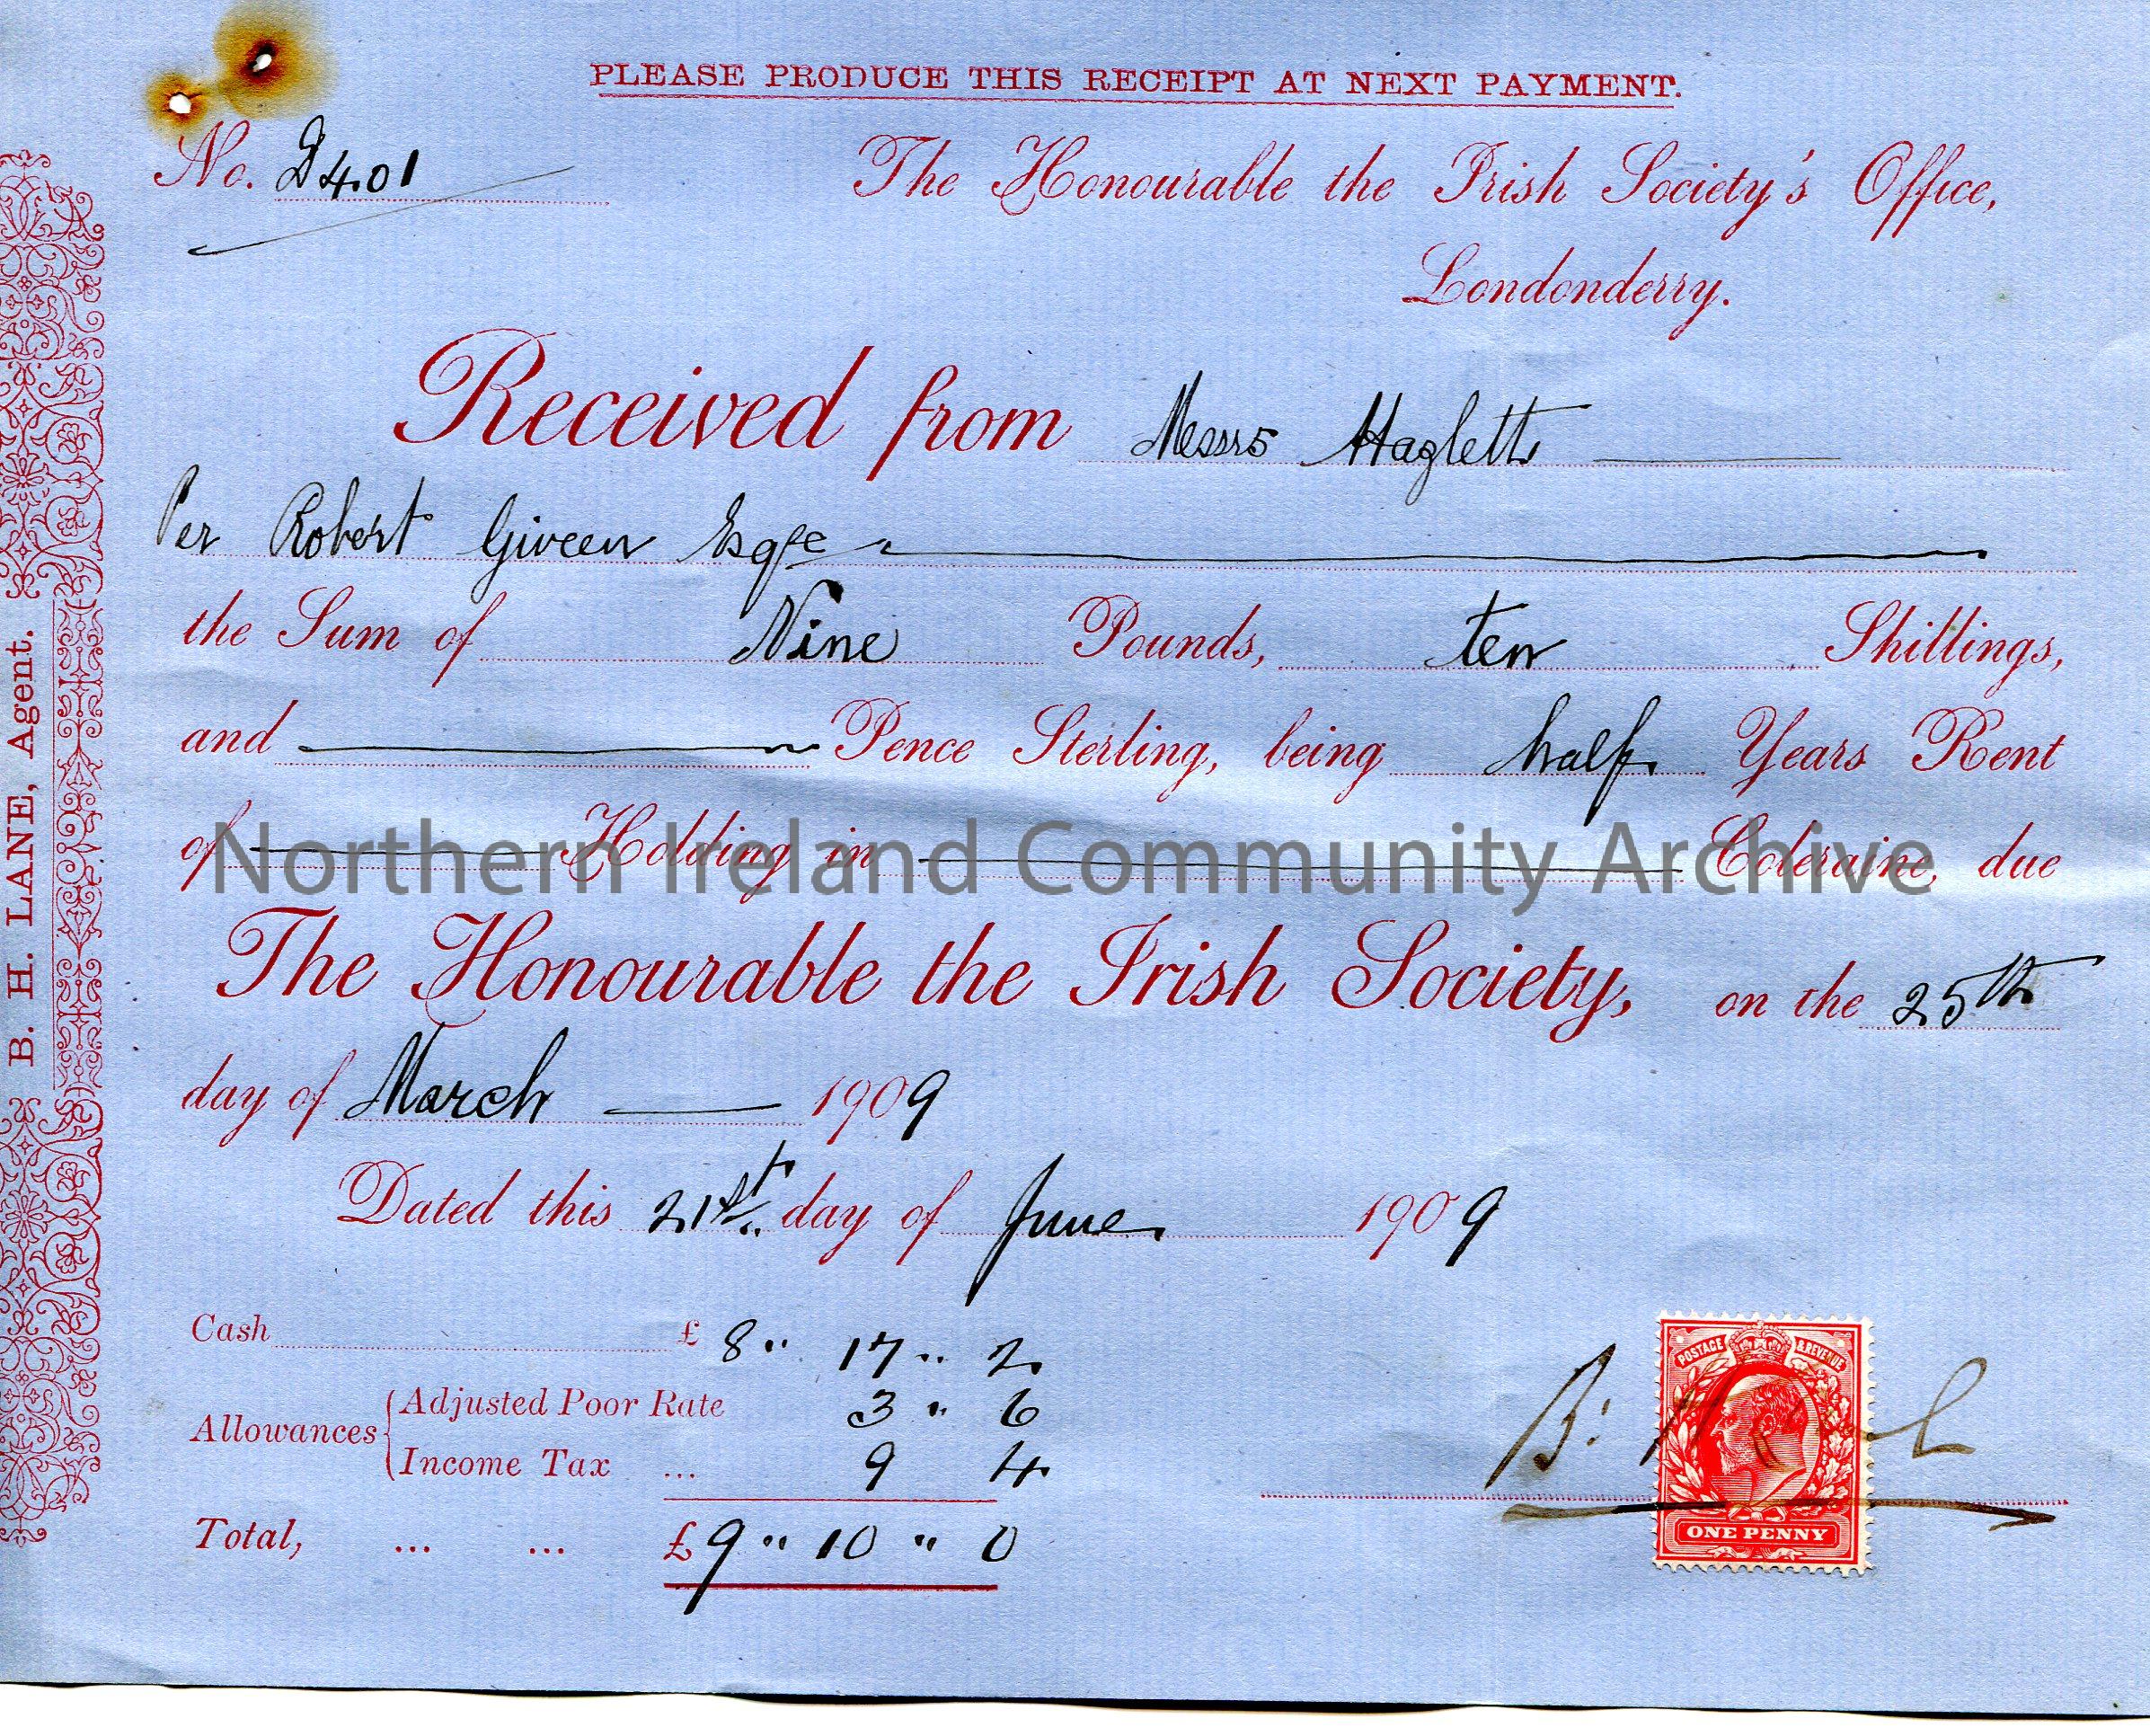 PLEASE PRODUCE THIS RECEIPT AT NEXT PAYMENT.
No. D401
The Honourable the Irish Society's Office,
Londonderry.
Received from Messrs Hazletts
Per Robert Given Esqre
the Sum of Nine Pounds, ten Shillings,
and Pence Sterling, being half Years Rent
of Holding in Coleraine, due
The Honourable the Irish Society, on the 25th
day of March 1909
Dated this 21st day of June 1909
Cash £ 8 " 17 " 2
Allowances
Adjusted Poor Rate 3 " 6
Income Tax ... 9 4
Total, ... ... £ 9 " 10 " 0
B. H.
POSTAGE & REVENUE
ONE PENNY
B. H. LANE, Agent.
Northern Ireland Community Archive